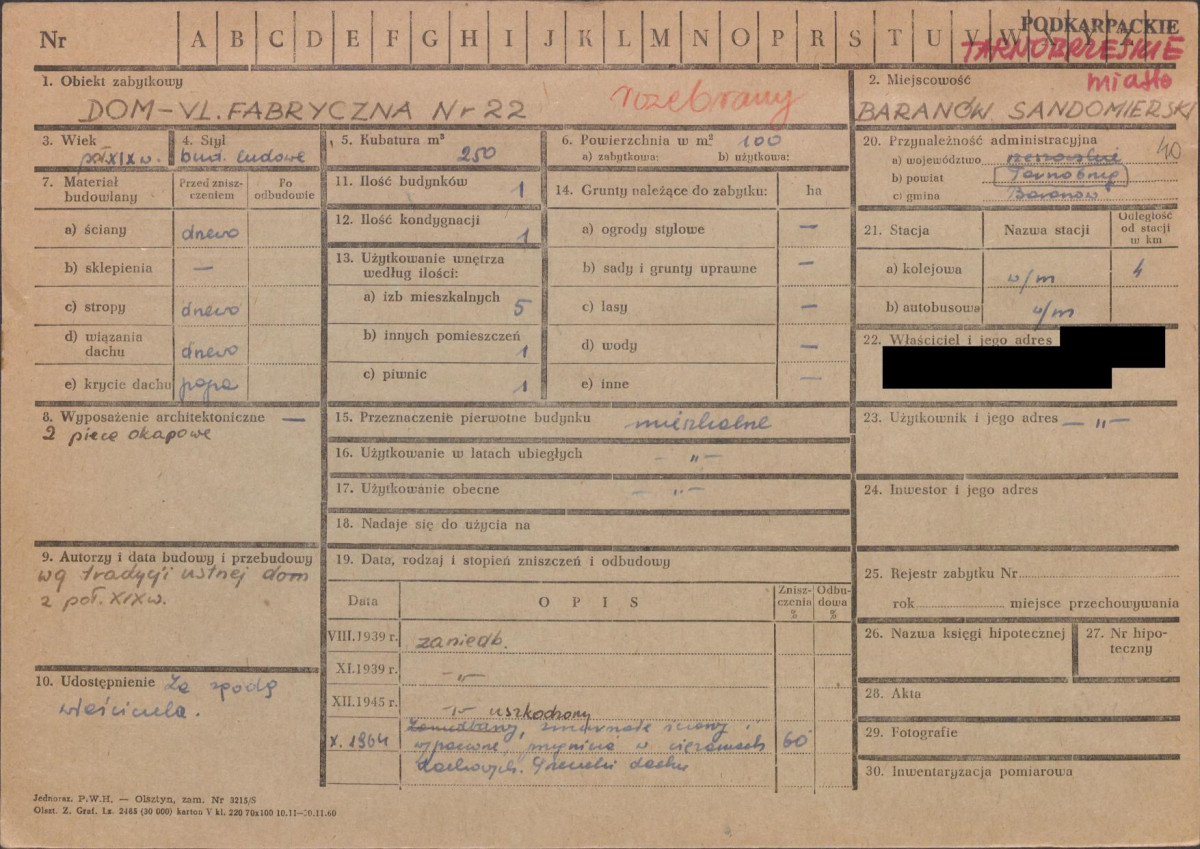 Nr A B C D E F G H I J K L M N O P R S T U V W X Y Z
PODKARPACKIE
TARNOBRZESKIE
miasto
1. Obiekt zabytkowy
DOM - UL. FABRYCZNA Nr 22
rozebrany
2. Miejscowość
BARANÓW SANDOMIERSKI
3. Wiek
poł XIX w.
4. Styl
bud. ludowe
5. Kubatura m³
250
6. Powierzchnia w m² 100
a) zabytkowa: b) użytkowa:
20. Przynależność administracyjna
40
a) województwo rzeszowskie
b) powiat Tarnobrzeg
c) gmina Baranów
7. Materiał budowlany
Przed zniszczeniem
Po odbudowie
a) ściany drewo
b) sklepienia —
c) stropy drewo
d) wiązania dachu drewo
e) krycie dachu papa
11. Ilość budynków 1
12. Ilość kondygnacji 1
13. Użytkowanie wnętrza
według ilości:
a) izb mieszkalnych 5
b) innych pomieszczeń 1
c) piwnic 1
14. Grunty należące do zabytku: ha
a) ogrody stylowe —
b) sady i grunty uprawne —
c) lasy —
d) wody —
e) inne —
21. Stacja Nazwa stacji Odległość od stacji w km
a) kolejowa w/m 4
b) autobusowa w/m
22. Właściciel i jego adres
8. Wyposażenie architektoniczne —
2 piece okapowe
15. Przeznaczenie pierwotne budynku mieszkalne
16. Użytkowanie w latach ubiegłych - „ -
17. Użytkowanie obecne - „ -
18. Nadaje się do użycia na
23. Użytkownik i jego adres - „ -
24. Inwestor i jego adres
9. Autorzy i data budowy i przebudowy
wg tradycji ustnej dom
z poł. XIX w.
10. Udostępnienie Za zgodą
właściciela.
19. Data, rodzaj i stopień zniszczeń i odbudowy
Data OPIS Zniszczenia % Odbudowa %
VIII.1939 r. zaniedb.
XI.1939 r. - „ -
XII.1945 r. - „ - uszkodzony
X. 1964 Zaniedbany, zmurszałe ściany i
wypaczone, w wiązaniach 60
dachowych. Przecieki dachu
25. Rejestr zabytku Nr
rok miejsce przechowywania
26. Nazwa księgi hipotecznej
27. Nr hipoteczny
28. Akta
29. Fotografie
30. Inwentaryzacja pomiarowa
Jednoraz. P.W.H. — Olsztyn, zam. Nr 3215/S
Olszt. Z. Graf. Lz. 2485 (30 000) karton V kl. 220 70x100 10.11—30.11.60